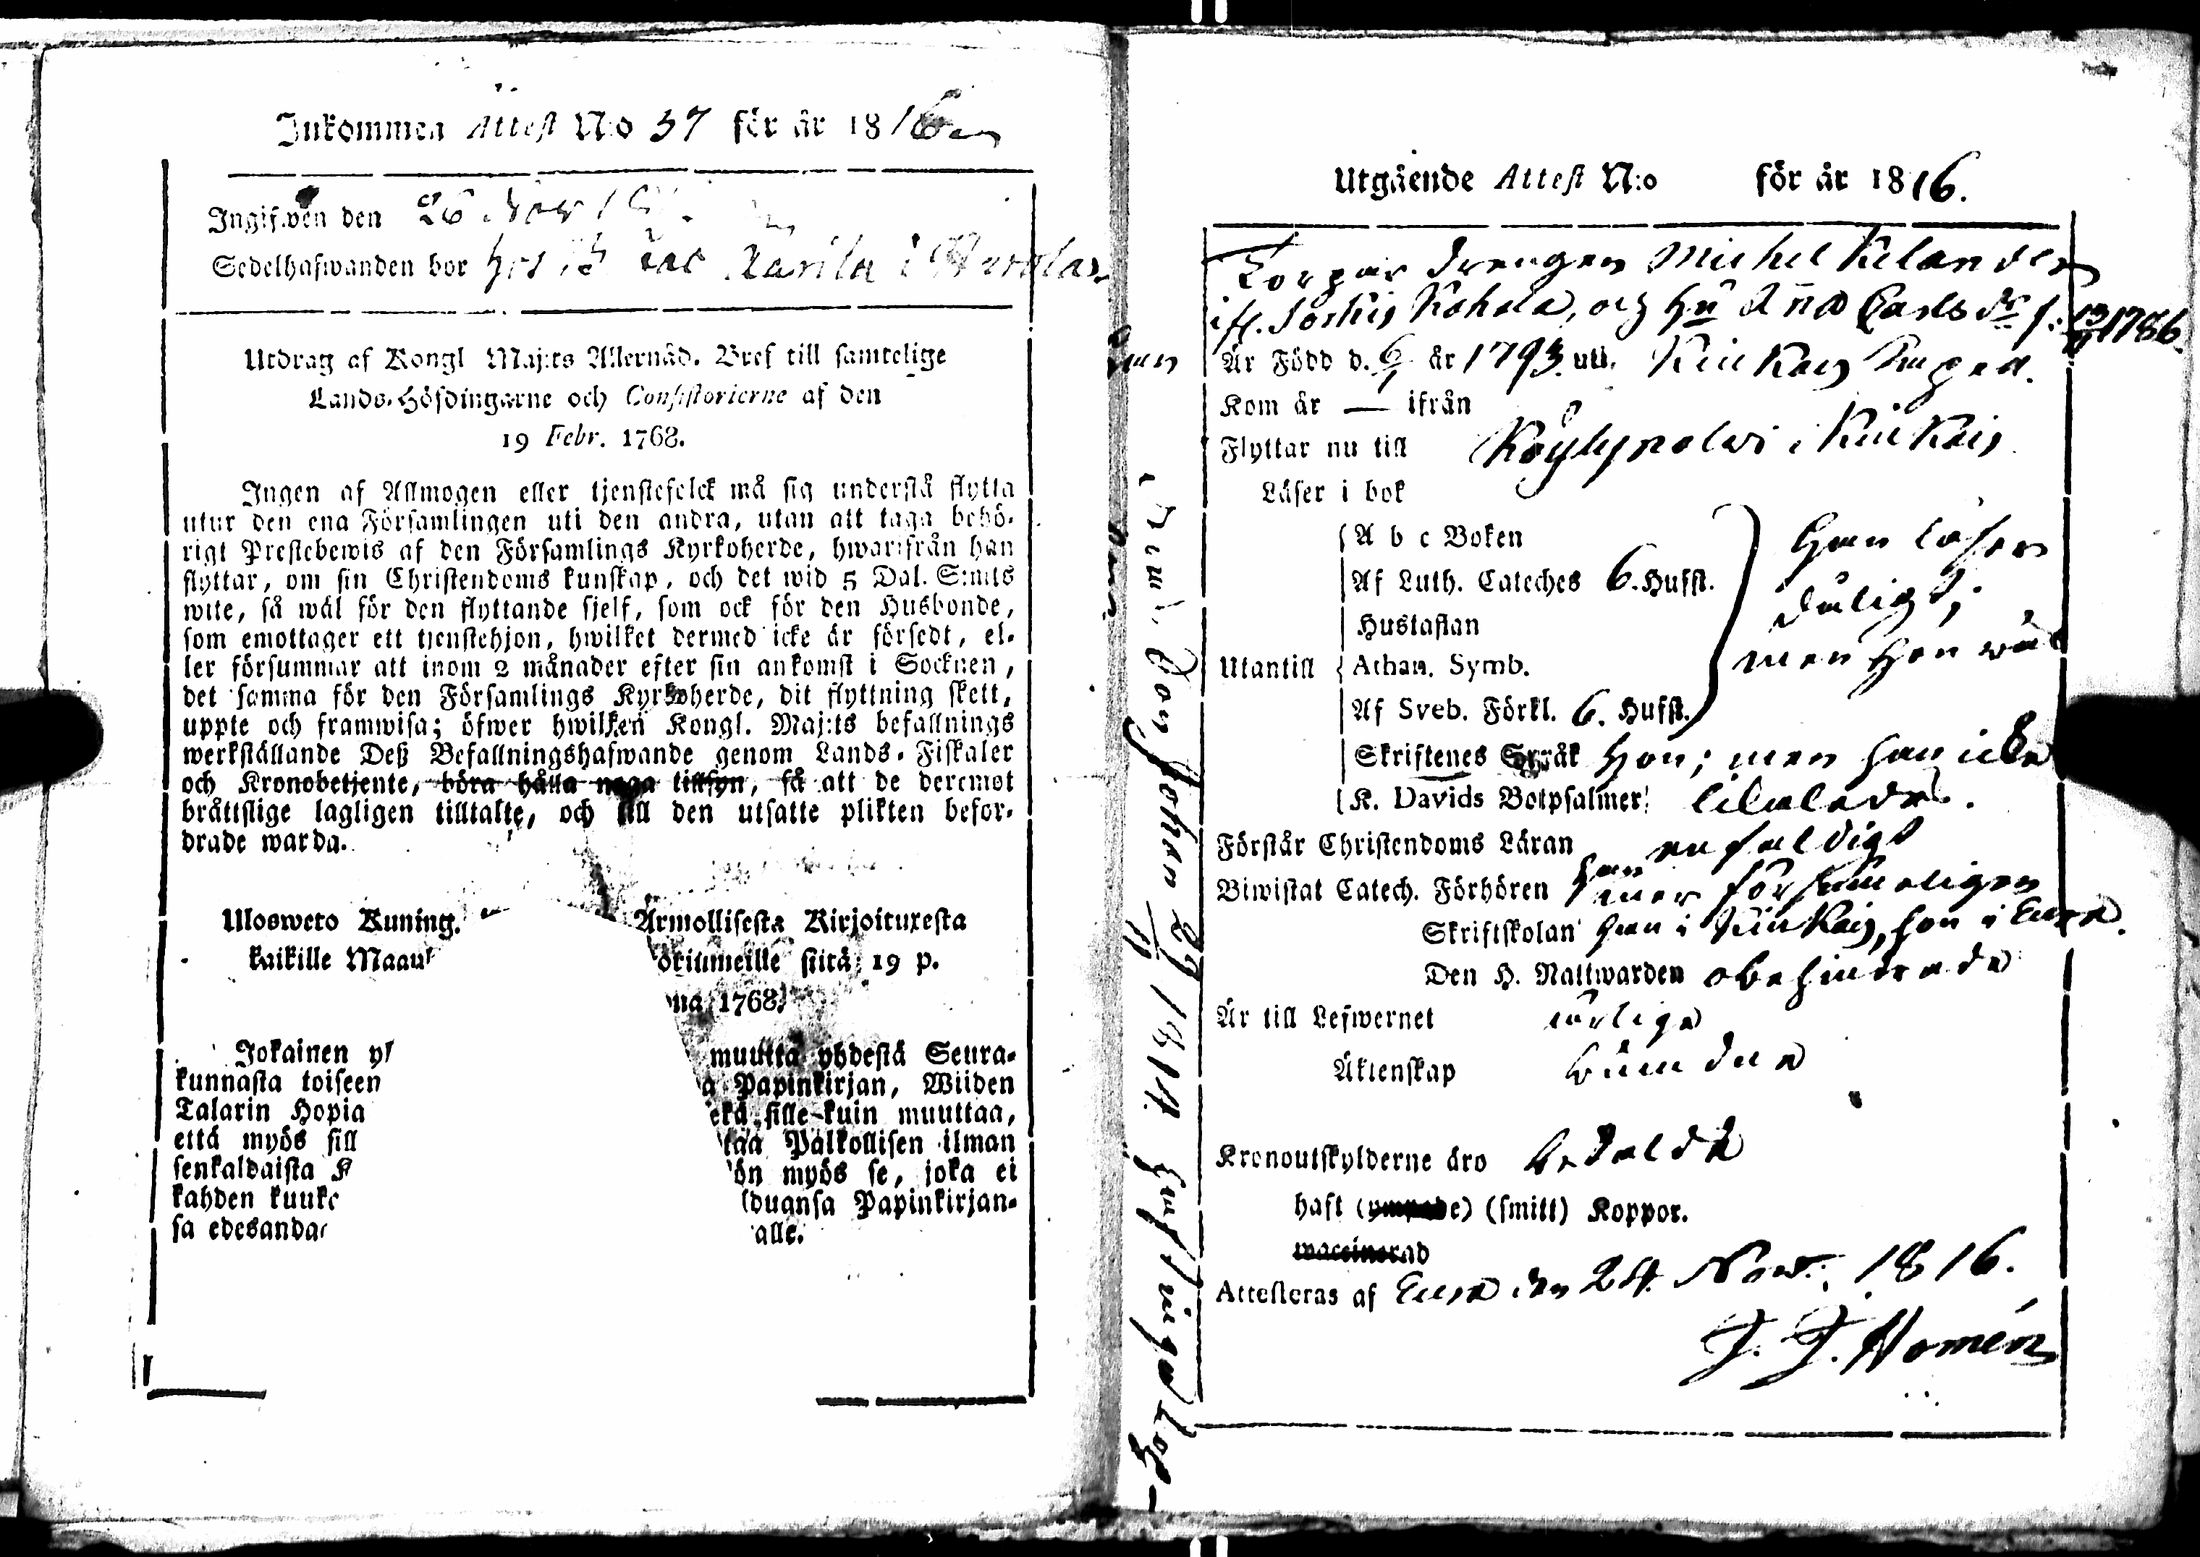 Inkommen Attest N:o 37 för år 1816
Ingifwen den 26 Nov
Sedelhafwanden bor hos
Utdrag af Kongl Maj:ts Allernåd. Bref till samtelige
Lands-Höfdingarne och Consistorierne af den
19 Febr. 1768.
Ingen af Allmogen eller tjenstefolck må sig understå flytta
utur den ena Församlingen uti den andra, utan att taga behö-
rigt Prestebewis af den Församlings Kyrkoherde, hwarifrån han
flyttar, om sin Christendoms kunskap, och det wid 5 Dal. S:mts
wite, så wäl för den flyttande sjelf, som ock för den Husbonde,
som emottager ett tjenstehjon, hwilket dermed icke är försedt, el-
ler försummar att inom 2 månader efter sin ankomst i Socknen,
det samma för den Församlings Kyrkoherde, dit flyttning skett,
uppte och framwisa; öfwer hwilken Kongl. Maj:ts befallnings
werkställande Deß Befallningshafwande genom Lands-Fiskaler
och Kronobetjente, böra hålla noga tillsyn, så att de deremot
bråttslige lagligen tilltalte, och till den utsatte plikten befor-
drade warda.
Ulosweto Kuning. Armollisesta Kirjoituxesta
kaikille Maau oritumeille siitä 19 p.
na 1768.
Jokainen yl muutta yhdestä Seura-
kunnasta toiseen a Papinkirjan, Wiiden
Talarin Hopia ekä sille kuin muuttaa,
että myös sill taa Palkollisen ilman
senkaldaista K ön myös se, joka ei
kahden kuuke lduansa Papinkirjan-
sa edesandar alle.
Utgående Attest N:o för år 1816.
Torpar drengen Michel Kelander
ifr. Sorkis Kohela, och Hu Aña Carlsdr f. 1786.
Är Född d. 6/1 år 1793 uti. Kiukais Capell.
Kom år — ifrån
Flyttar nu till Köylypolwi i Kiukais
Läser i bok
Utantill
A b c Boken
Af Luth. Cateches 6. Hufst.
Hustaflan
Athan. Symb.
Af Sveb. Förkl. 6. Hufst.
Han läser
dåligt;
men Hon wäl
Skriftenes Språk Hon; men han icke
K. Davids Botpsalmer likaledes.
Förstår Christendoms Läran enfaldigt
Biwistat Catech. Förhören
Skriftskolan han i Kiukais, hon i Eura.
Den H. Nattwarden obehindrade
Är till Lefwernet ärliga
Äktenskap
Kronoutskylderne äro betalda
haft (ympade) (smitt) Koppor.
waccinerad
Attesteras af Eura den 24 Nov. 1816.
J. J. Homén
Johan 29/11 1814